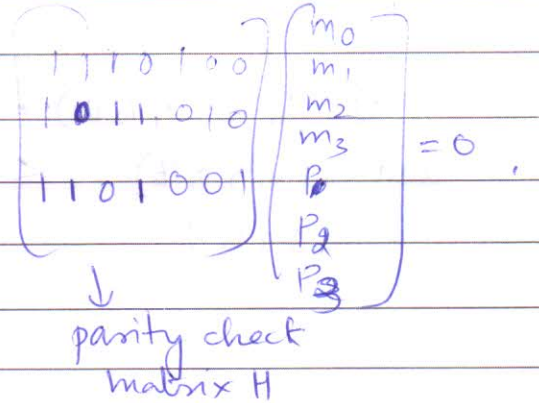 1 1 1 0 1 0 0
1 0 1 1 0 1 0
1 1 0 1 0 0 1
m0
m1
m2
m3
P1
P2
P3
= 0 .
↓
parity check
matrix H